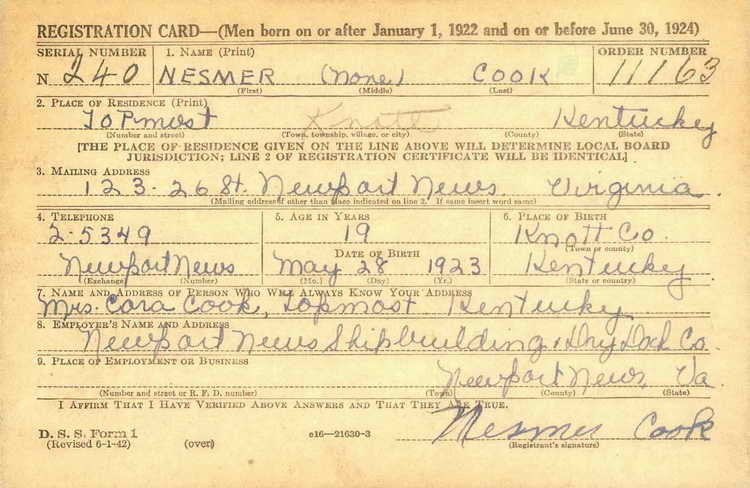 REGISTRATION CARD—(Men born on or after January 1, 1922 and on or before June 30, 1924)
SERIAL NUMBER 1. NAME (Print) ORDER NUMBER
N 240 NESMER (None) COOK 11163
(First) (Middle) (Last)
2. PLACE OF RESIDENCE (Print)
TOPmost Knott Kentucky
(Number and street) (Town, township, village, or city) (County) (State)
[THE PLACE OF RESIDENCE GIVEN ON THE LINE ABOVE WILL DETERMINE LOCAL BOARD
JURISDICTION; LINE 2 OF REGISTRATION CERTIFICATE WILL BE IDENTICAL]
3. MAILING ADDRESS
123-26 St. Newport News. Virginia.
(Mailing address if other than place indicated on line 2. If same insert word same)
4. TELEPHONE 5. AGE IN YEARS 6. PLACE OF BIRTH
2-5349 19 Knott Co.
DATE OF BIRTH (Town or county)
Newport News May 28 1923 Kentucky
(Exchange) (Number) (Mo.) (Day) (Yr.) (State or country)
7. NAME AND ADDRESS OF PERSON WHO WILL ALWAYS KNOW YOUR ADDRESS
Mrs. Cora Cook, Topmost Kentucky
8. EMPLOYER'S NAME AND ADDRESS
Newport News Shipbuilding & Dry Dock Co.
9. PLACE OF EMPLOYMENT OR BUSINESS
Newport News, Va.
(Number and street or R. F. D. number) (Town) (County) (State)
I AFFIRM THAT I HAVE VERIFIED ABOVE ANSWERS AND THAT THEY ARE TRUE.
D. S. S. Form 1
(Revised 6-1-42) (over) c16—21630-3 Nesmer Cook
(Registrant's signature)